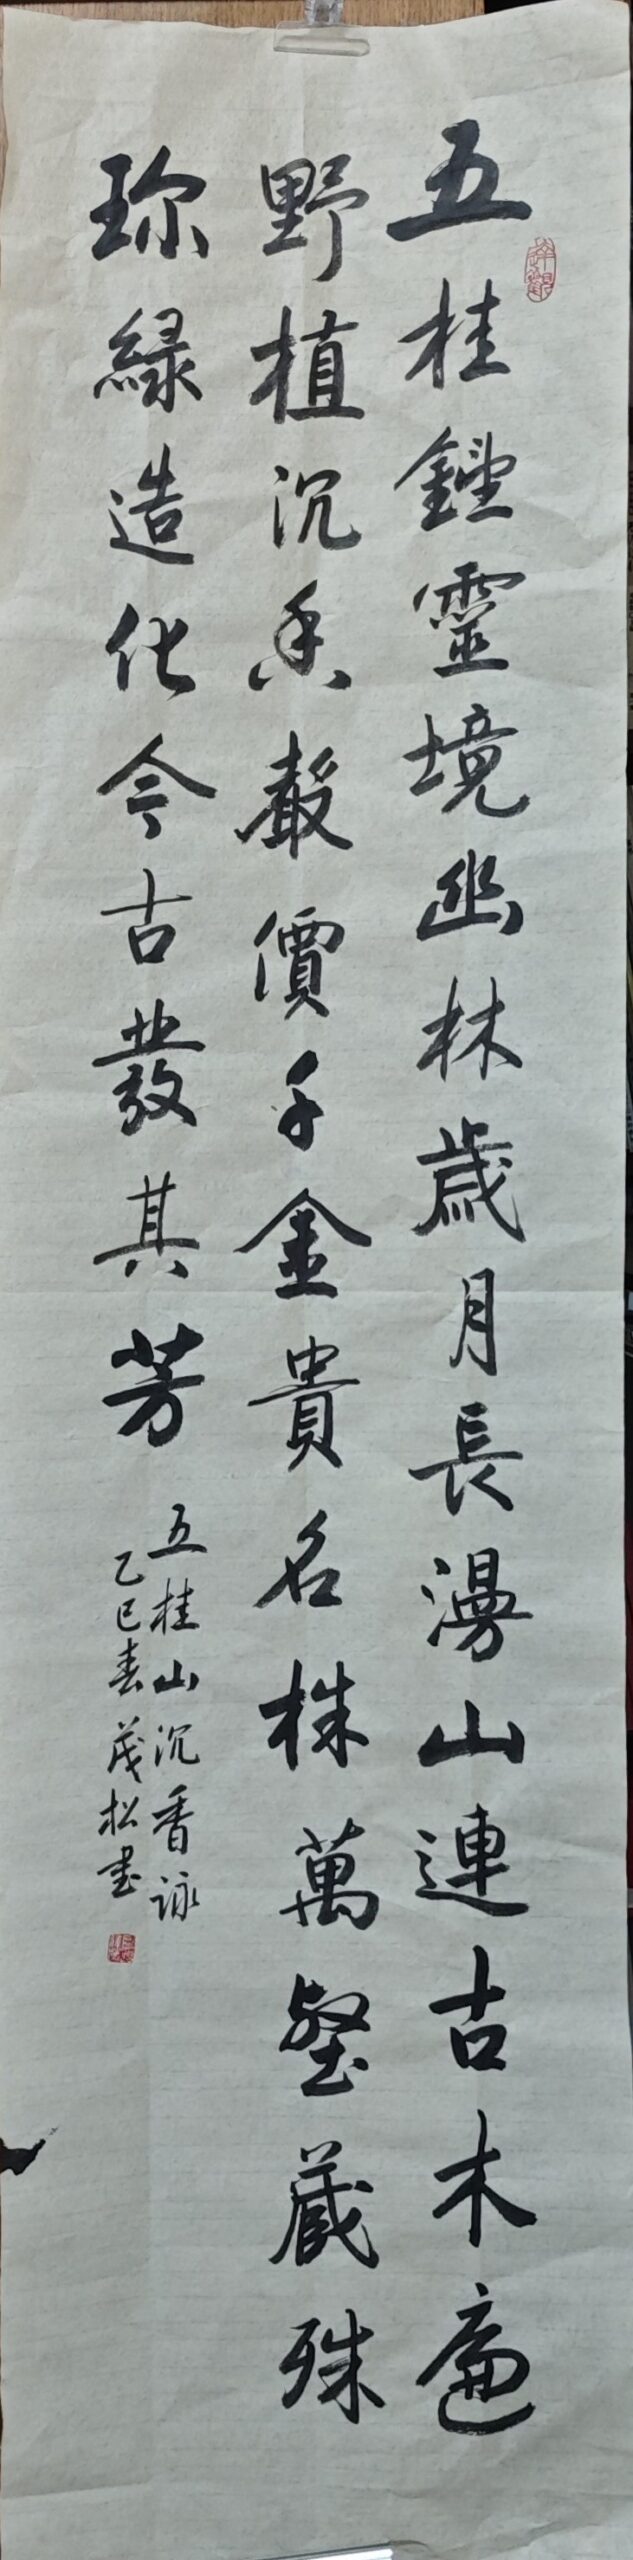 五桂鍾靈境幽林歲月長漫山連古木遍
野植沉香聲價千金貴名株萬壑藏殊
珎綠造化今古發其芳
五桂山沉香詠
乙巳春茂松書